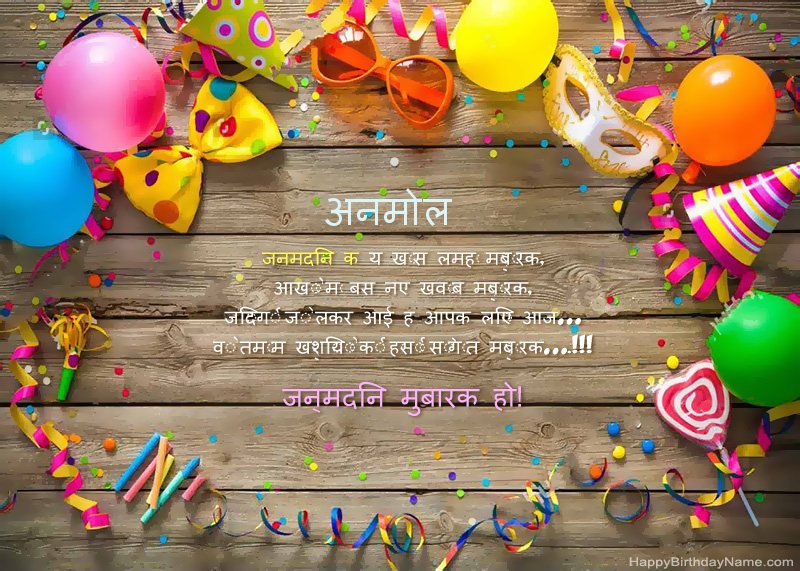 अनमोल
जनमदिन क य खास लमहा मुबारक,
आखों में बसे नए खवाब मुबारक,
जिंदगी जो लेकर आई है आपके लिए आज...
वो तमाम खुशियों की हसीं सौगात मुबारक...!!!
जन्मदिन मुबारक हो!
HappyBirthdayName.com